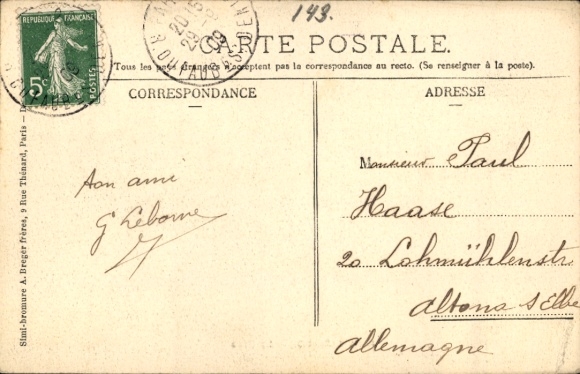 143.
REPUBLIQUE FRANÇAISE
5c
POSTES
CARTE POSTALE.
Tous les pays étrangers n'acceptent pas la correspondance au recto. (Se renseigner à la poste).
CORRESPONDANCE
ADRESSE
Monsieur Paul
Haase
20 Lohmühlenstr
Altona s/Elbe
Allemagne
Son ami
G Leborne
Simi-bromure A. Breger frères, 9 Rue Thénard, Paris